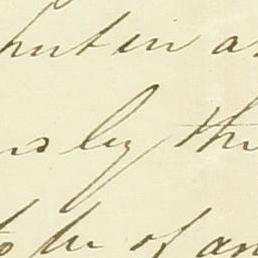 but in a
by the
to be of an